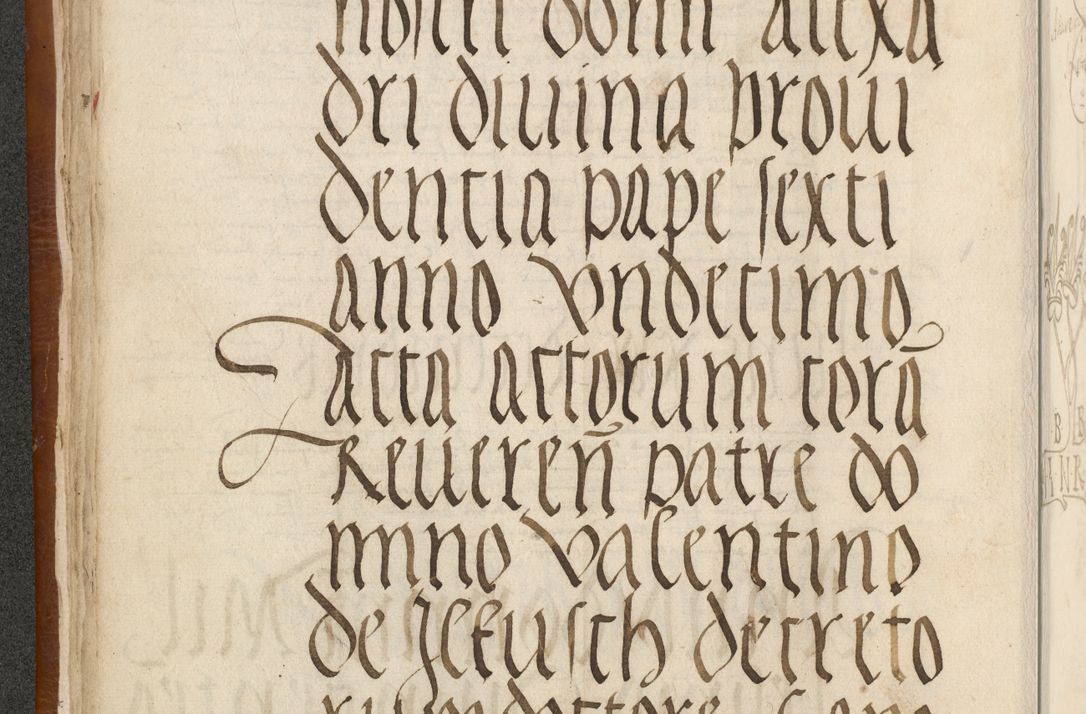 nostri domi alexa
dri diuina proui
dentia pape sexti
anno vndecimo
acta actorum corā
Reueren̄ patre do
mino valentino
de Jlkusch decreto
rum doctore Cano